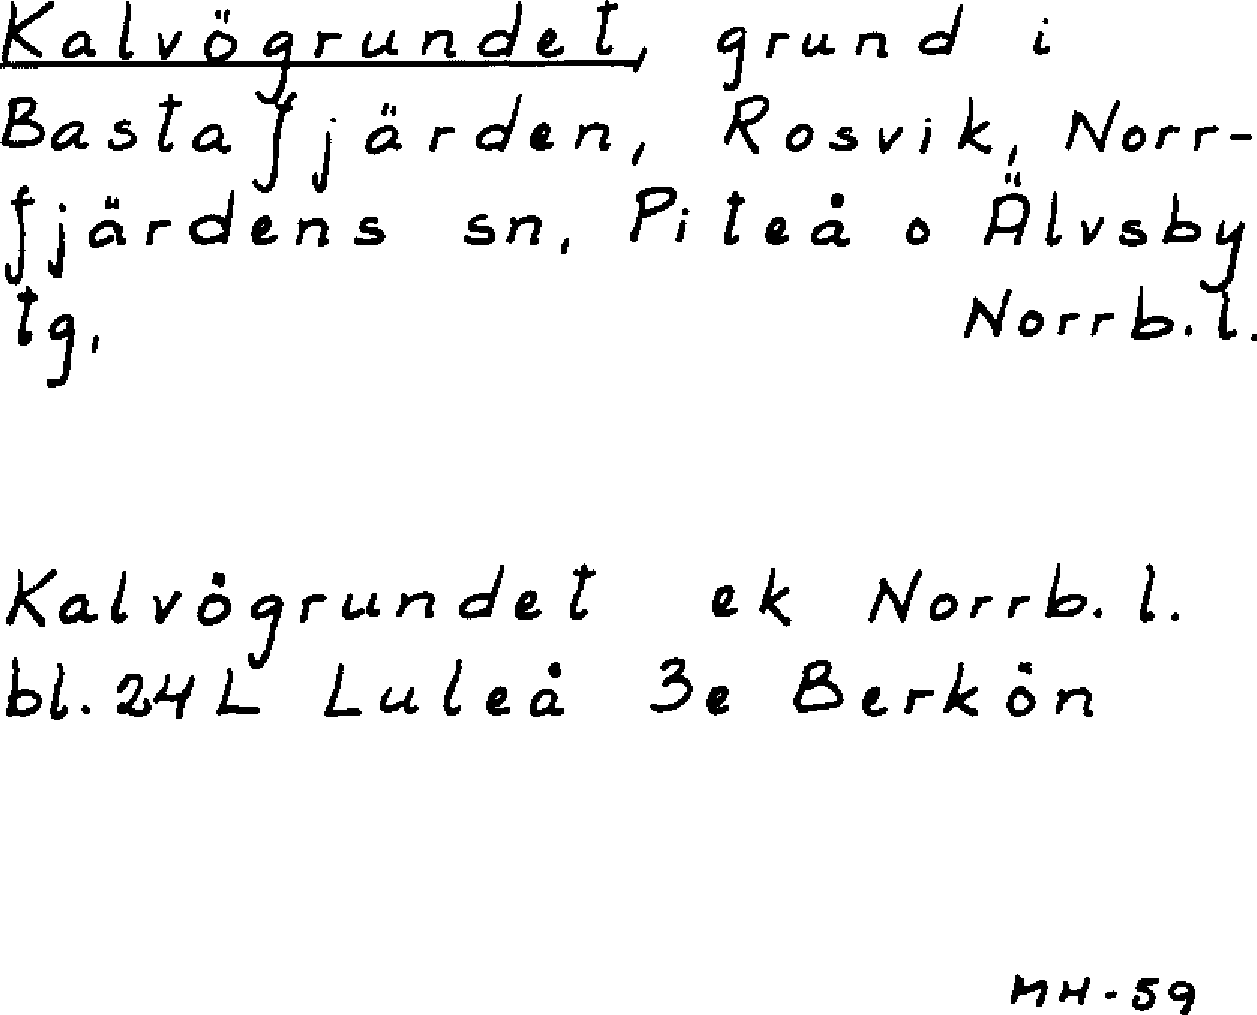 Kalvögrundet, grund i
Bastafjärden, Rosvik, Norr-
fjärdens sn, Piteå o Älvsby
tg, Norrb.l.
Kalvögrundet ek Norrb.l.
bl.24L Luleå 3e Berkön
MH-59